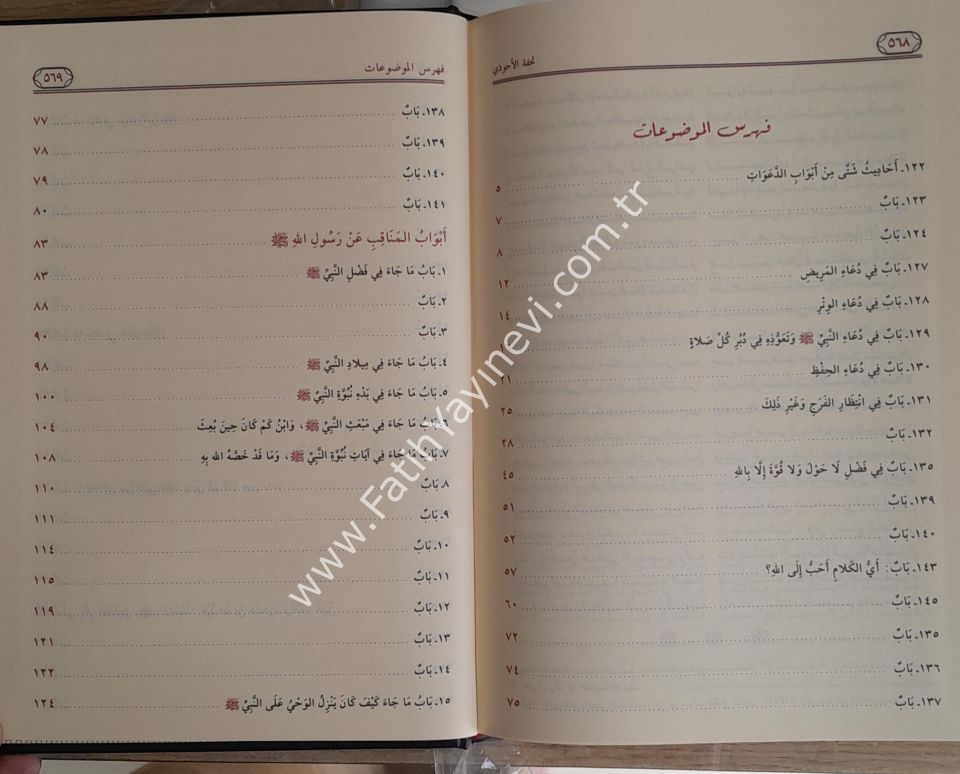 ٥٦٨
تحفة الأحوذي
فهرس الموضوعات
١٢٢. أَحَادِيثُ شَتَّى مِنْ أَبْوَابِ الدَّعَوَاتِ ٥
١٢٣. بَابٌ ٧
١٢٤. بَابٌ ٨
١٢٧. بَابٌ فِي دُعَاءِ المَرِيضِ ١٢
١٢٨. بَابٌ فِي دُعَاءِ الوِتْرِ ١٤
١٢٩. بَابٌ فِي دُعَاءِ النَّبِيِّ ﷺ وَتَعَوُّذِهِ فِي دُبُرِ كُلِّ صَلَاةٍ
١٣٠. بَابٌ فِي دُعَاءِ الحِفْظِ ٢١
١٣١. بَابٌ فِي انْتِظَارِ الفَرَجِ وَغَيْرِ ذَلِكَ ٢٥
١٣٢. بَابٌ ٢٨
١٣٥. بَابٌ فِي فَضْلِ لَا حَوْلَ وَلَا قُوَّةَ إِلَّا بِاللهِ ٤٥
١٣٩. بَابٌ ٥١
١٤٠. بَابٌ ٥٢
١٤٣. بَابٌ: أَيُّ الكَلَامِ أَحَبُّ إِلَى اللهِ؟ ٥٧
١٤٥. بَابٌ ٦٠
١٣٥. بَابٌ ٧٢
١٣٦. بَابٌ ٧٤
١٣٧. بَابٌ ٧٥
فهرس الموضوعات
٥٦٩
١٣٨. بَابٌ ٧٧
١٣٩. بَابٌ ٧٨
١٤٠. بَابٌ ٧٩
١٤١. بَابٌ ٨٠
أَبْوَابُ المَنَاقِبِ عَنْ رَسُولِ اللهِ ﷺ ٨٣
١. بَابُ مَا جَاءَ فِي فَضْلِ النَّبِيِّ ﷺ ٨٣
٢. بَابٌ ٨٨
٣. بَابٌ ٩٠
٤. بَابُ مَا جَاءَ فِي مِيلَادِ النَّبِيِّ ﷺ ٩٨
٥. بَابُ مَا جَاءَ فِي بَدْءِ نُبُوَّةِ النَّبِيِّ ﷺ ١٠٠
٦. بَابُ مَا جَاءَ فِي مَبْعَثِ النَّبِيِّ ﷺ، وَابْنُ كَمْ كَانَ حِينَ بُعِثَ ١٠٤
٧. بَابُ مَا جَاءَ فِي آيَاتِ نُبُوَّةِ النَّبِيِّ ﷺ، وَمَا قَدْ خَصَّهُ الله بِهِ ١٠٨
٨. بَابٌ ١١٠
٩. بَابٌ ١١١
١٠. بَابٌ ١١٤
١١. بَابٌ ١١٥
١٢. بَابٌ ١١٩
١٣. بَابٌ ١٢١
١٤. بَابٌ ١٢٢
١٥. بَابُ مَا جَاءَ كَيْفَ كَانَ يَنْزِلُ الوَحْيُ عَلَى النَّبِيِّ ﷺ ١٢٤
www.FatihYayinevi.com.tr